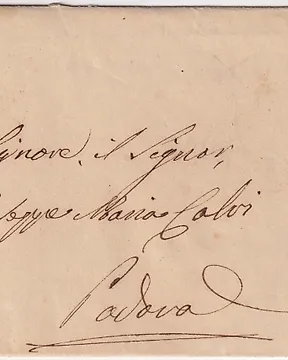 ignore, il Signor,
seppe Maria Calvi
Padova